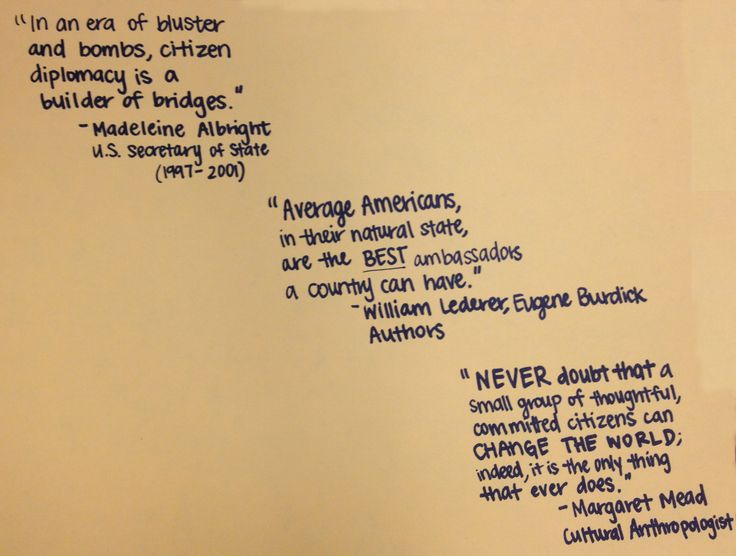 "In an era of bluster
and bombs, citizen
diplomacy is a
builder of bridges."
- Madeleine Albright
U.S. Secretary of State
(1997-2001)
"Average Americans,
in their natural state,
are the BEST ambassadors
a country can have."
- William Lederer, Eugene Burdick
Authors
"NEVER doubt that a
small group of thoughtful,
committed citizens can
CHANGE THE WORLD;
indeed, it is the only thing
that ever does."
- Margaret Mead
Cultural Anthropologist